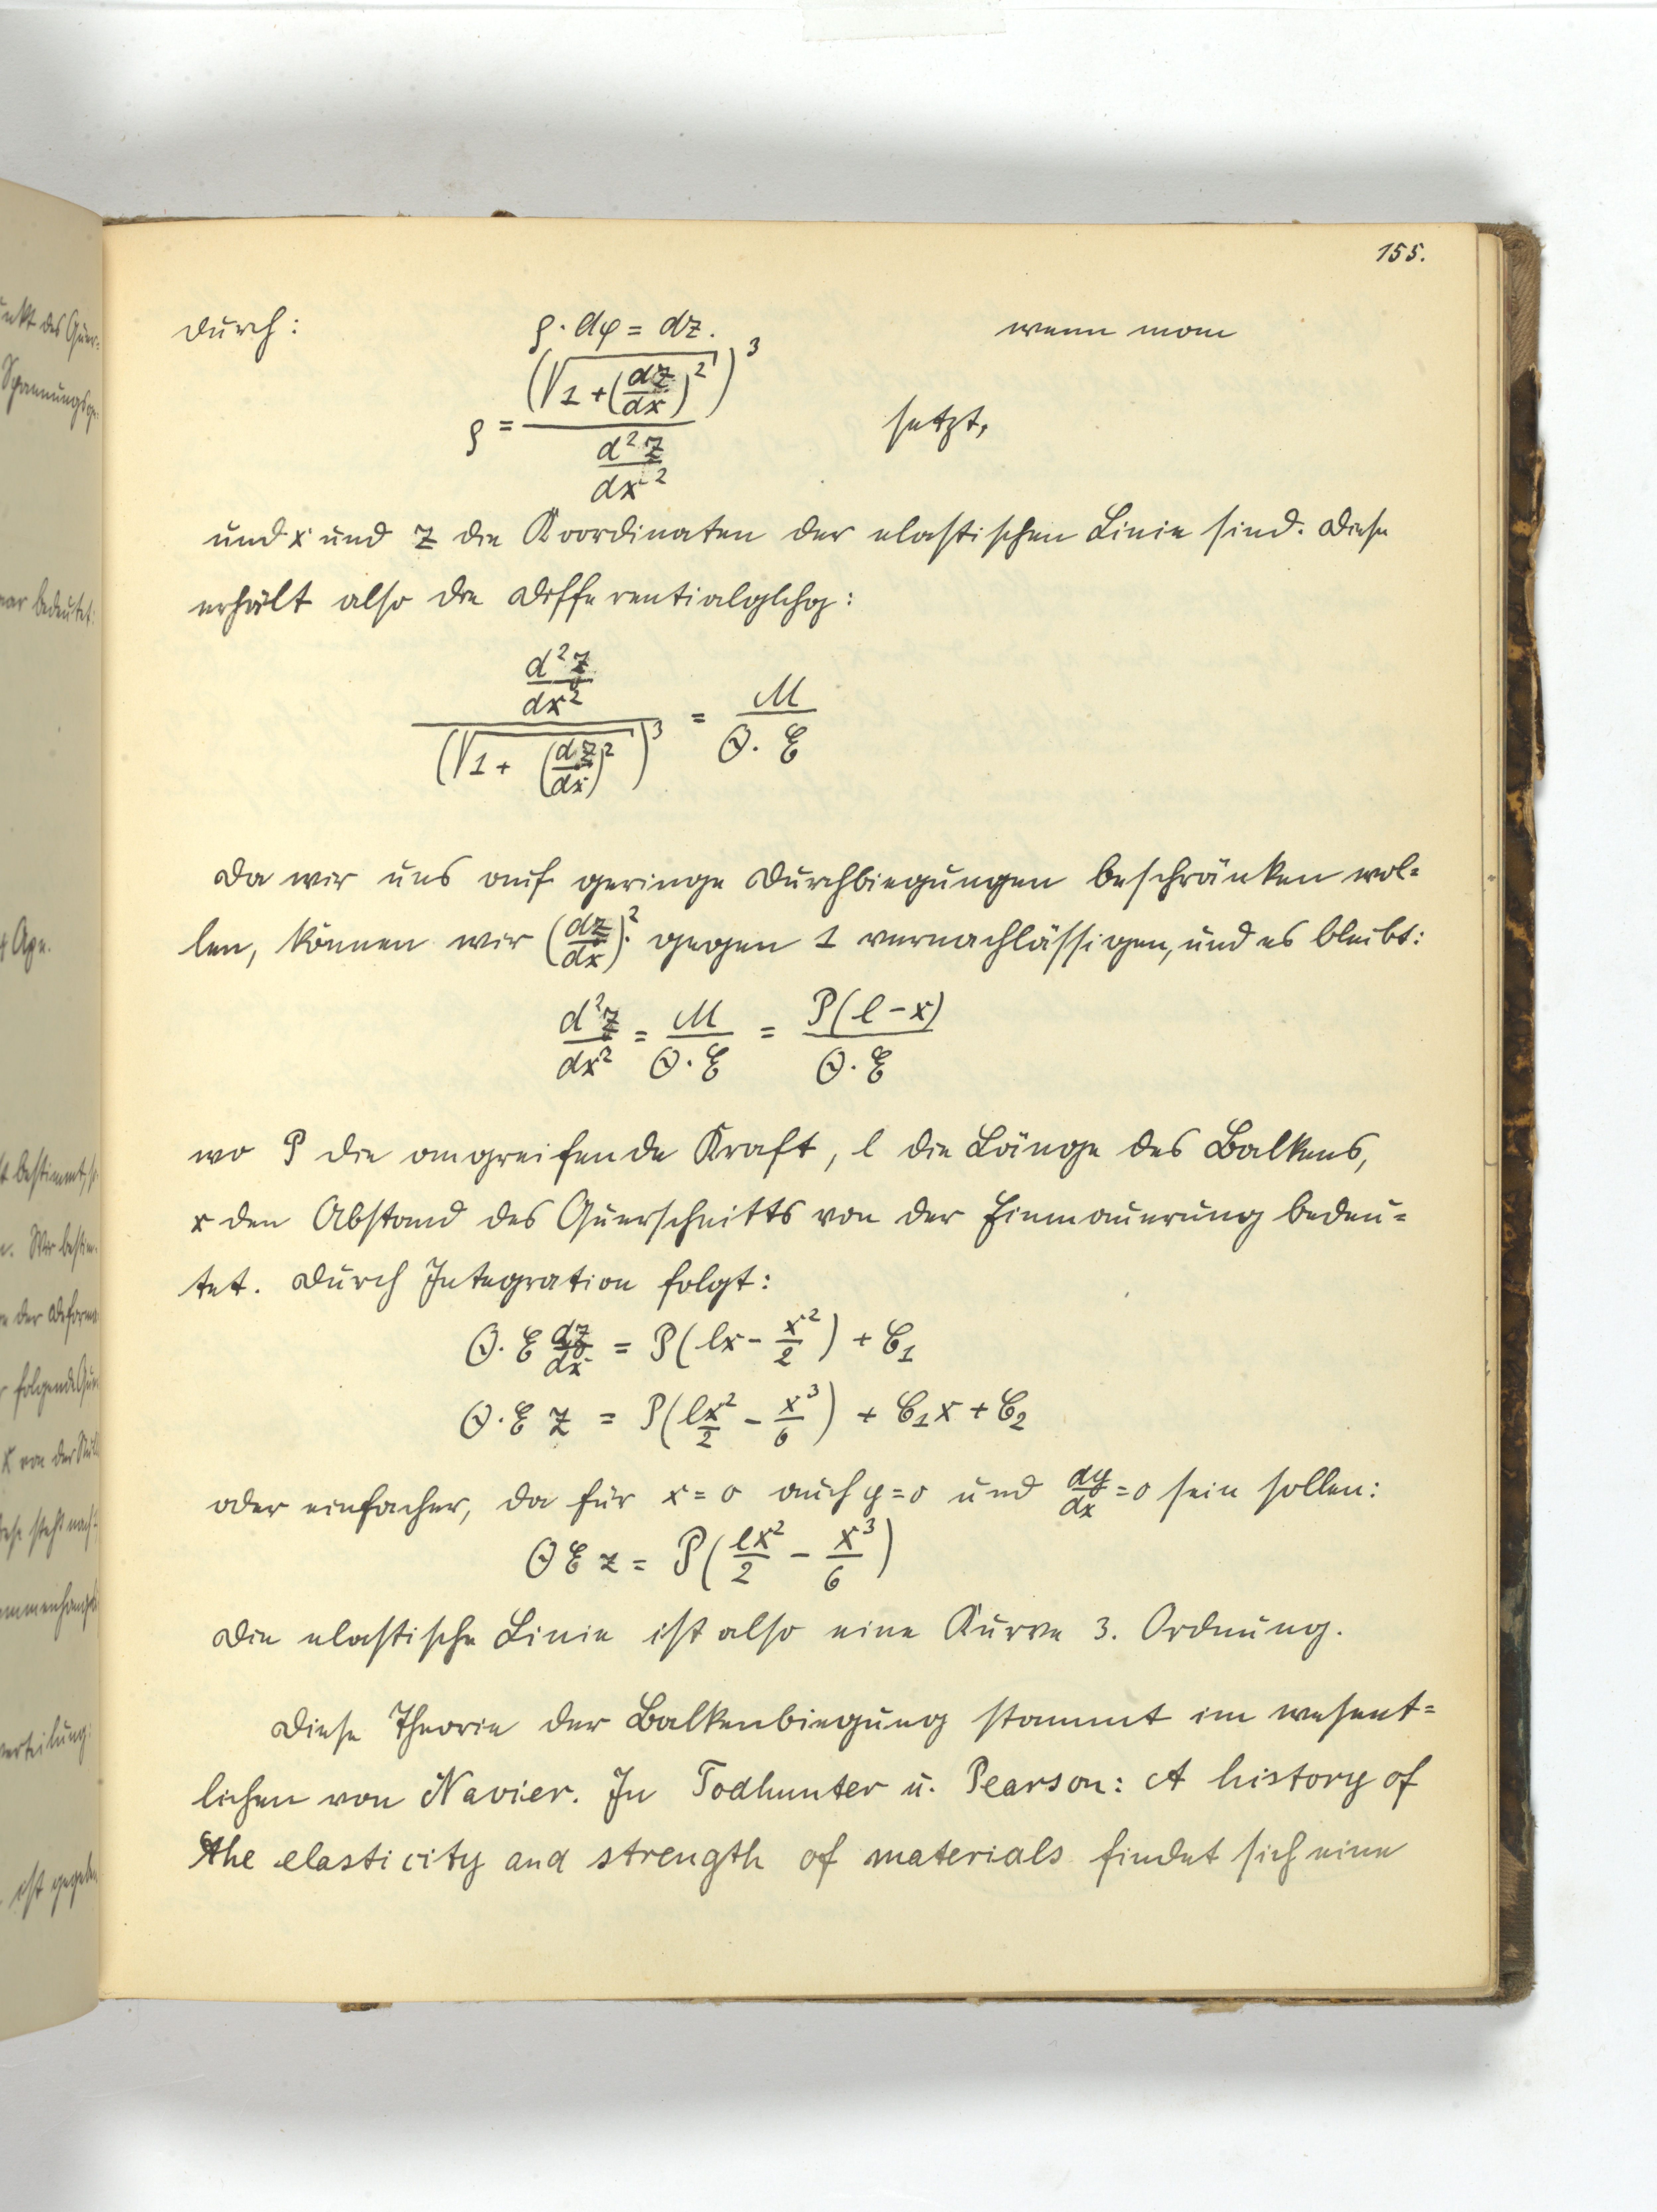 155.
durch: ρ·dφ = dz. wenn man
ρ = (√(1+(dz/dx)²))³ / (d²z/dx²) setzt,
und x und z die Koordinaten der elastischen Linie sind. Diese
erhält also die Differentialglchg:
(d²z/dx²) / (√(1+(dz/dx)²))³ = M/(Θ·E)
Da wir uns auf geringe Durchbiegungen beschränken wol=
len, können wir (dz/dx)² gegen 1 vernachlässigen, und es bleibt:
d²z/dx² = M/(Θ·E) = P(l-x)/(Θ·E)
wo P die angreifende Kraft, l die Länge des Balkens,
x den Abstand des Querschnitts von der Einmauerung bedeu=
tet. Durch Integration folgt:
Θ·E dz/dx = P(lx - x²/2) + C₁
Θ·E z = P(lx²/2 - x³/6) + C₁x + C₂
oder einfacher, da für x=0 auch y=0 und dy/dx=0 sein sollen:
Θ E z = P(lx²/2 - x³/6)
Die elastische Linie ist also eine Kurve 3. Ordnung.
Diese Theorie der Balkenbiegung stammt im wesent=
lichen von Navier. In Todhunter u. Pearson: A history of
the elasticity and strength of materials findet sich eine